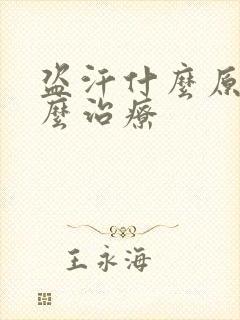 盗汗什麼原
麼治療
王永海